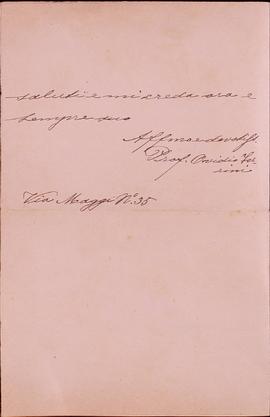 saluti e mi creda ora e
sempre suo
Aff.mo e devotiss.
Prof. Ovidio
rini
Via Maggi N.° 35